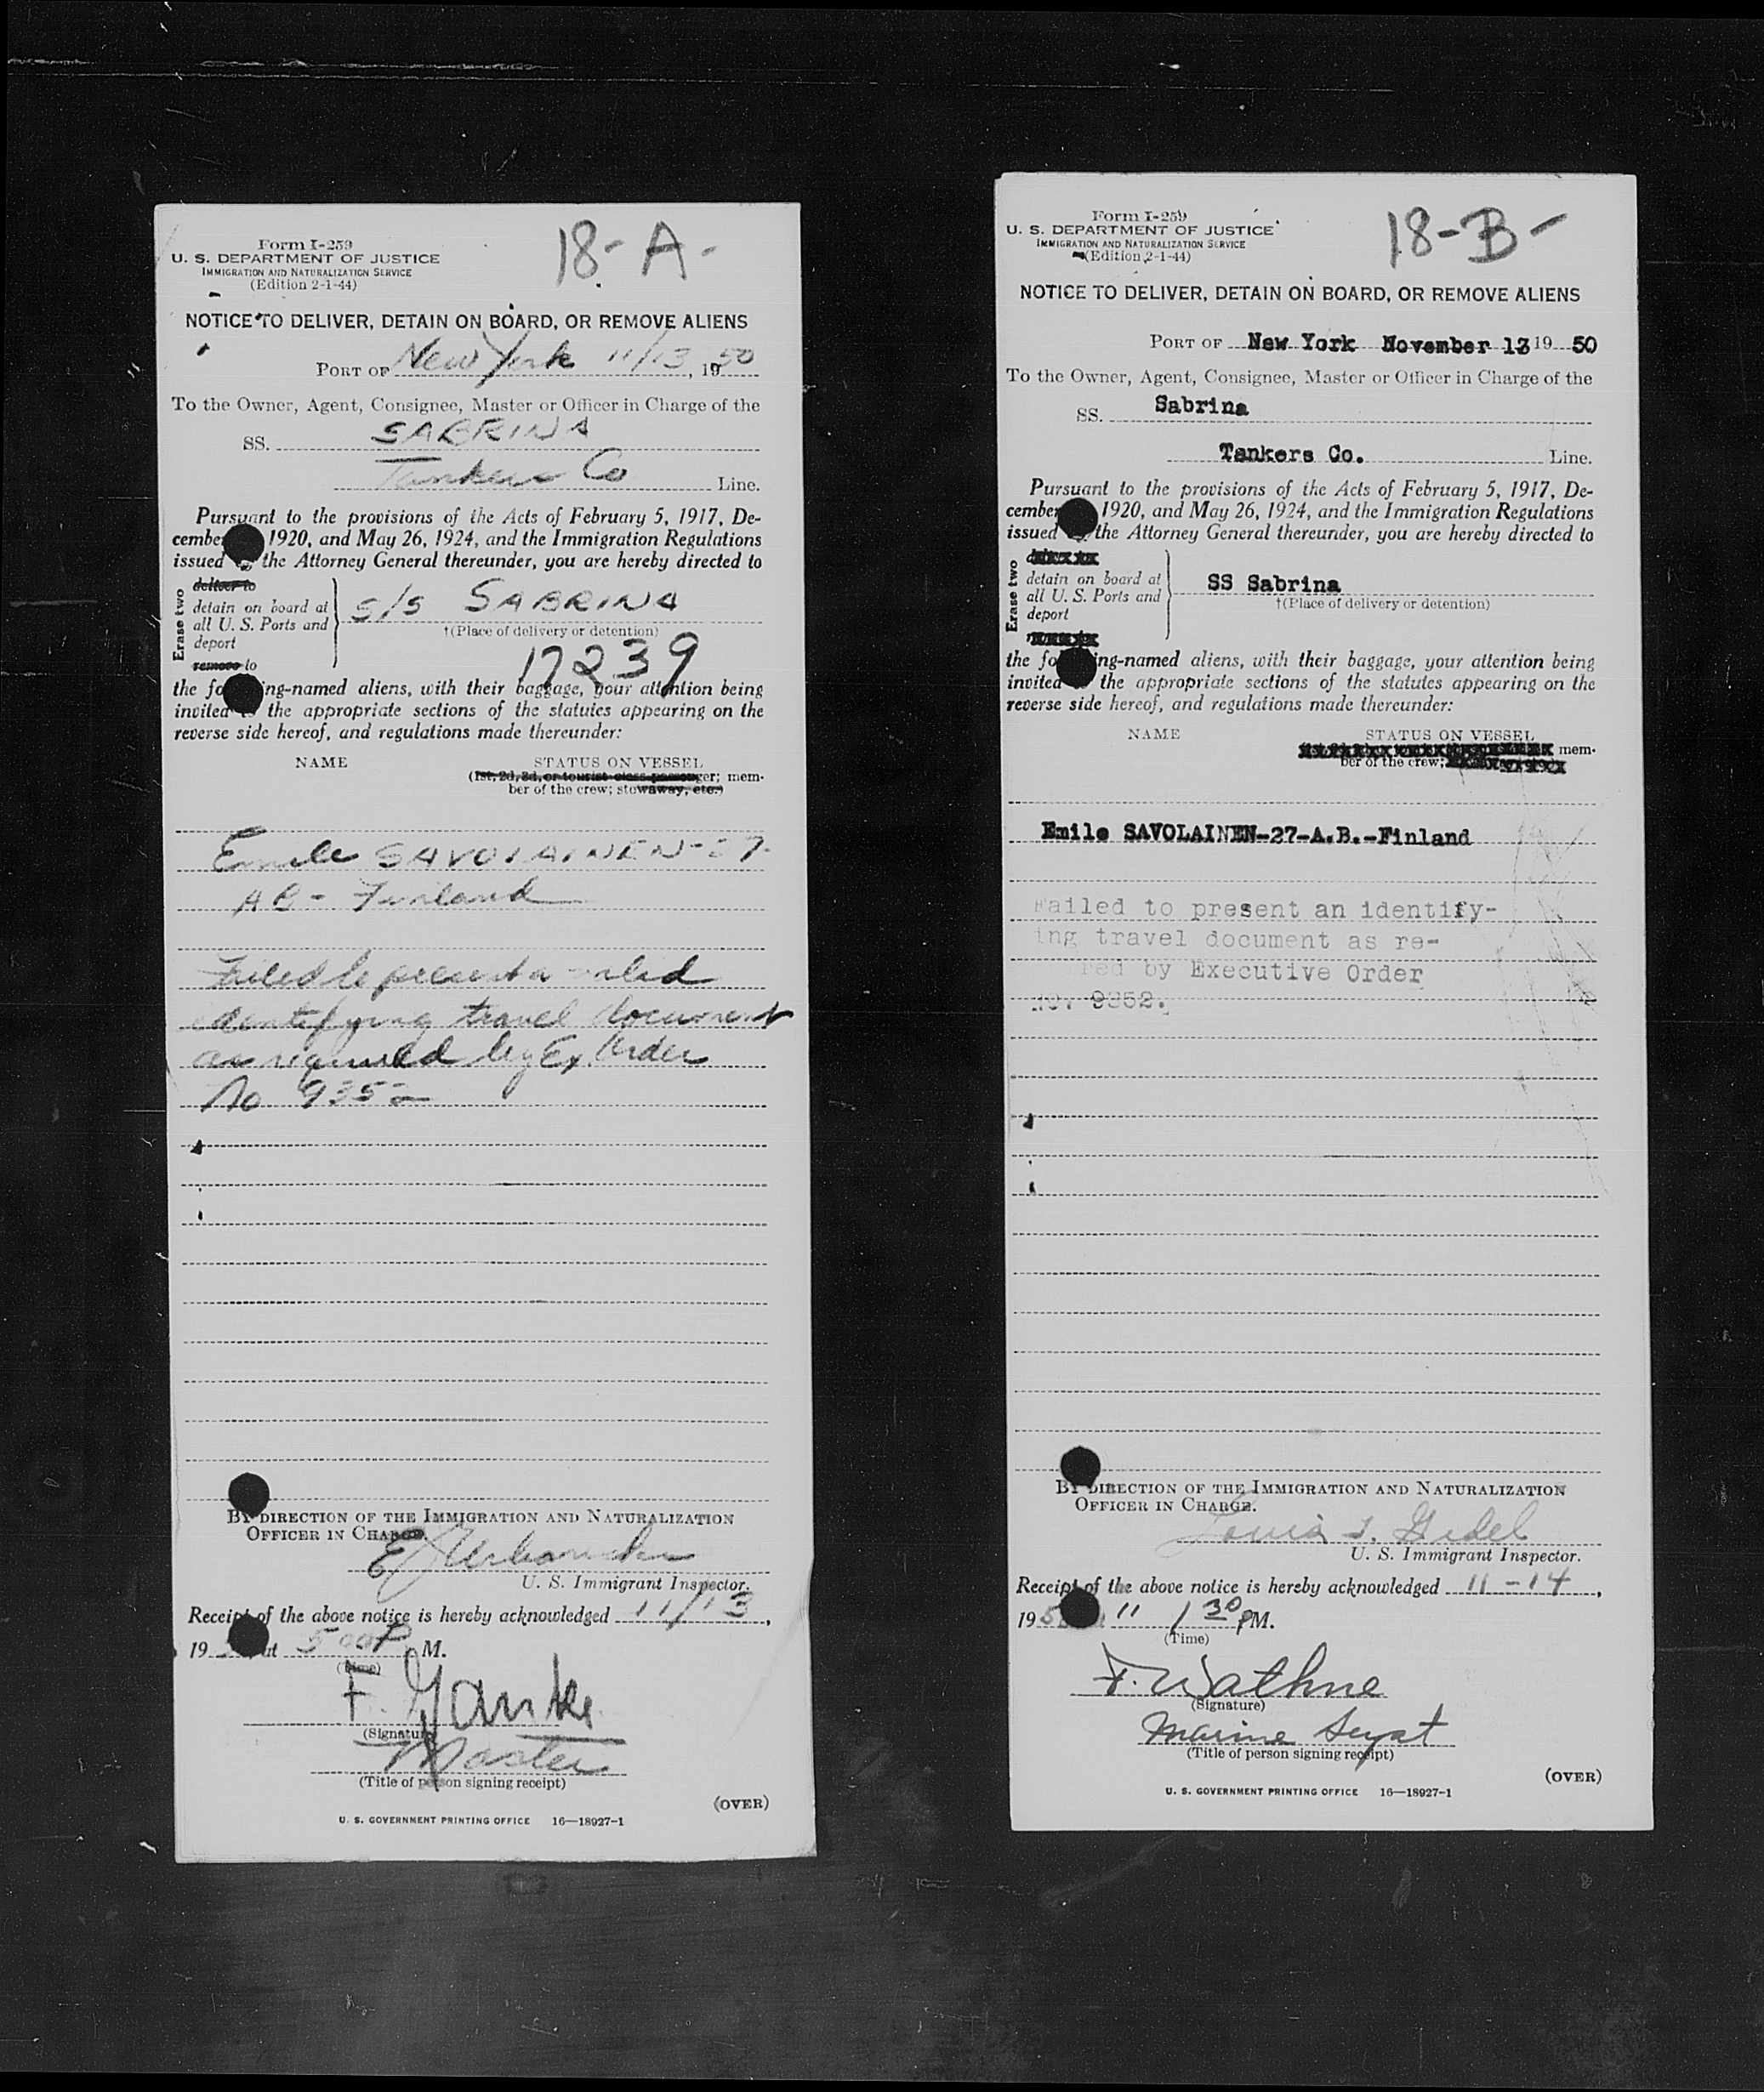 Form I-259
U. S. DEPARTMENT OF JUSTICE
IMMIGRATION AND NATURALIZATION SERVICE
(Edition 2-1-44)
18-A-
NOTICE TO DELIVER, DETAIN ON BOARD, OR REMOVE ALIENS
PORT OF New York 11/13, 1950
To the Owner, Agent, Consignee, Master or Officer in Charge of the
SS. SABRINA
Tankers Co Line.
Pursuant to the provisions of the Acts of February 5, 1917, De-
cember 1920, and May 26, 1924, and the Immigration Regulations
issued the Attorney General thereunder, you are hereby directed to
Erase two
deliver to
detain on board at
all U. S. Ports and
deport
remove to
S/S SABRINA
†(Place of delivery or detention)
17239
the following-named aliens, with their baggage, your attention being
invited to the appropriate sections of the statutes appearing on the
reverse side hereof, and regulations made thereunder:
NAME STATUS ON VESSEL
(1st, 2d, 3d, or tourist class passenger; mem-
ber of the crew; stowaway, etc.)
Emile SAVOLAINEN-27-
AB - Finland
Failed to present a valid
identifying travel document
as required by Ex. Order
No 9352
BY DIRECTION OF THE IMMIGRATION AND NATURALIZATION
OFFICER IN CHARGE.
U. S. Immigrant Inspector.
Receipt of the above notice is hereby acknowledged 11/13,
19 at 5 00 P M.
(Time)
F.
(Signature)
Master
(Title of person signing receipt)
(OVER)
U. S. GOVERNMENT PRINTING OFFICE 16—18927-1
Form I-259
U. S. DEPARTMENT OF JUSTICE
IMMIGRATION AND NATURALIZATION SERVICE
(Edition 2-1-44)
18-B-
NOTICE TO DELIVER, DETAIN ON BOARD, OR REMOVE ALIENS
PORT OF New York November 13 19 50
To the Owner, Agent, Consignee, Master or Officer in Charge of the
SS. Sabrina
Tankers Co. Line.
Pursuant to the provisions of the Acts of February 5, 1917, De-
cember 1920, and May 26, 1924, and the Immigration Regulations
issued the Attorney General thereunder, you are hereby directed to
Erase two
detain on board at
all U. S. Ports and
deport
SS Sabrina
†(Place of delivery or detention)
the following-named aliens, with their baggage, your attention being
invited to the appropriate sections of the statutes appearing on the
reverse side hereof, and regulations made thereunder:
NAME STATUS ON VESSEL
mem-
ber of the crew;
Emile SAVOLAINEN-27-A.B.-Finland
Failed to present an identify-
ing travel document as re-
red by Executive Order
No. 9352.
BY DIRECTION OF THE IMMIGRATION AND NATURALIZATION
OFFICER IN CHARGE.
Louis
U. S. Immigrant Inspector.
Receipt of the above notice is hereby acknowledged 11-14,
195 " 1 30 PM.
(Time)
F. Wathne
(Signature)
Marine Supt
(Title of person signing receipt)
(OVER)
U. S. GOVERNMENT PRINTING OFFICE 16—18927-1